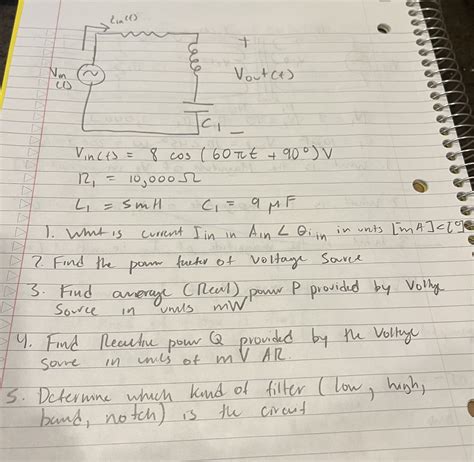 Iin(t)
+
Vin
(t)
Vout(t)
C1 -
Vin(t) = 8 cos (60πt + 90°) V
R1 = 10,000Ω
L1 = 5mH C1 = 9 μF
1. What is current Iin in Ain ∠ θiin in units [mA]<[°]
2. Find the power factor of voltage source
3. Find average (Real) power P provided by Voltage
Source in units mW
4. Find Reactive power Q provided by the Voltage
Source in units of mVAR.
5. Determine which kind of filter (low, high,
band, notch) is the circuit